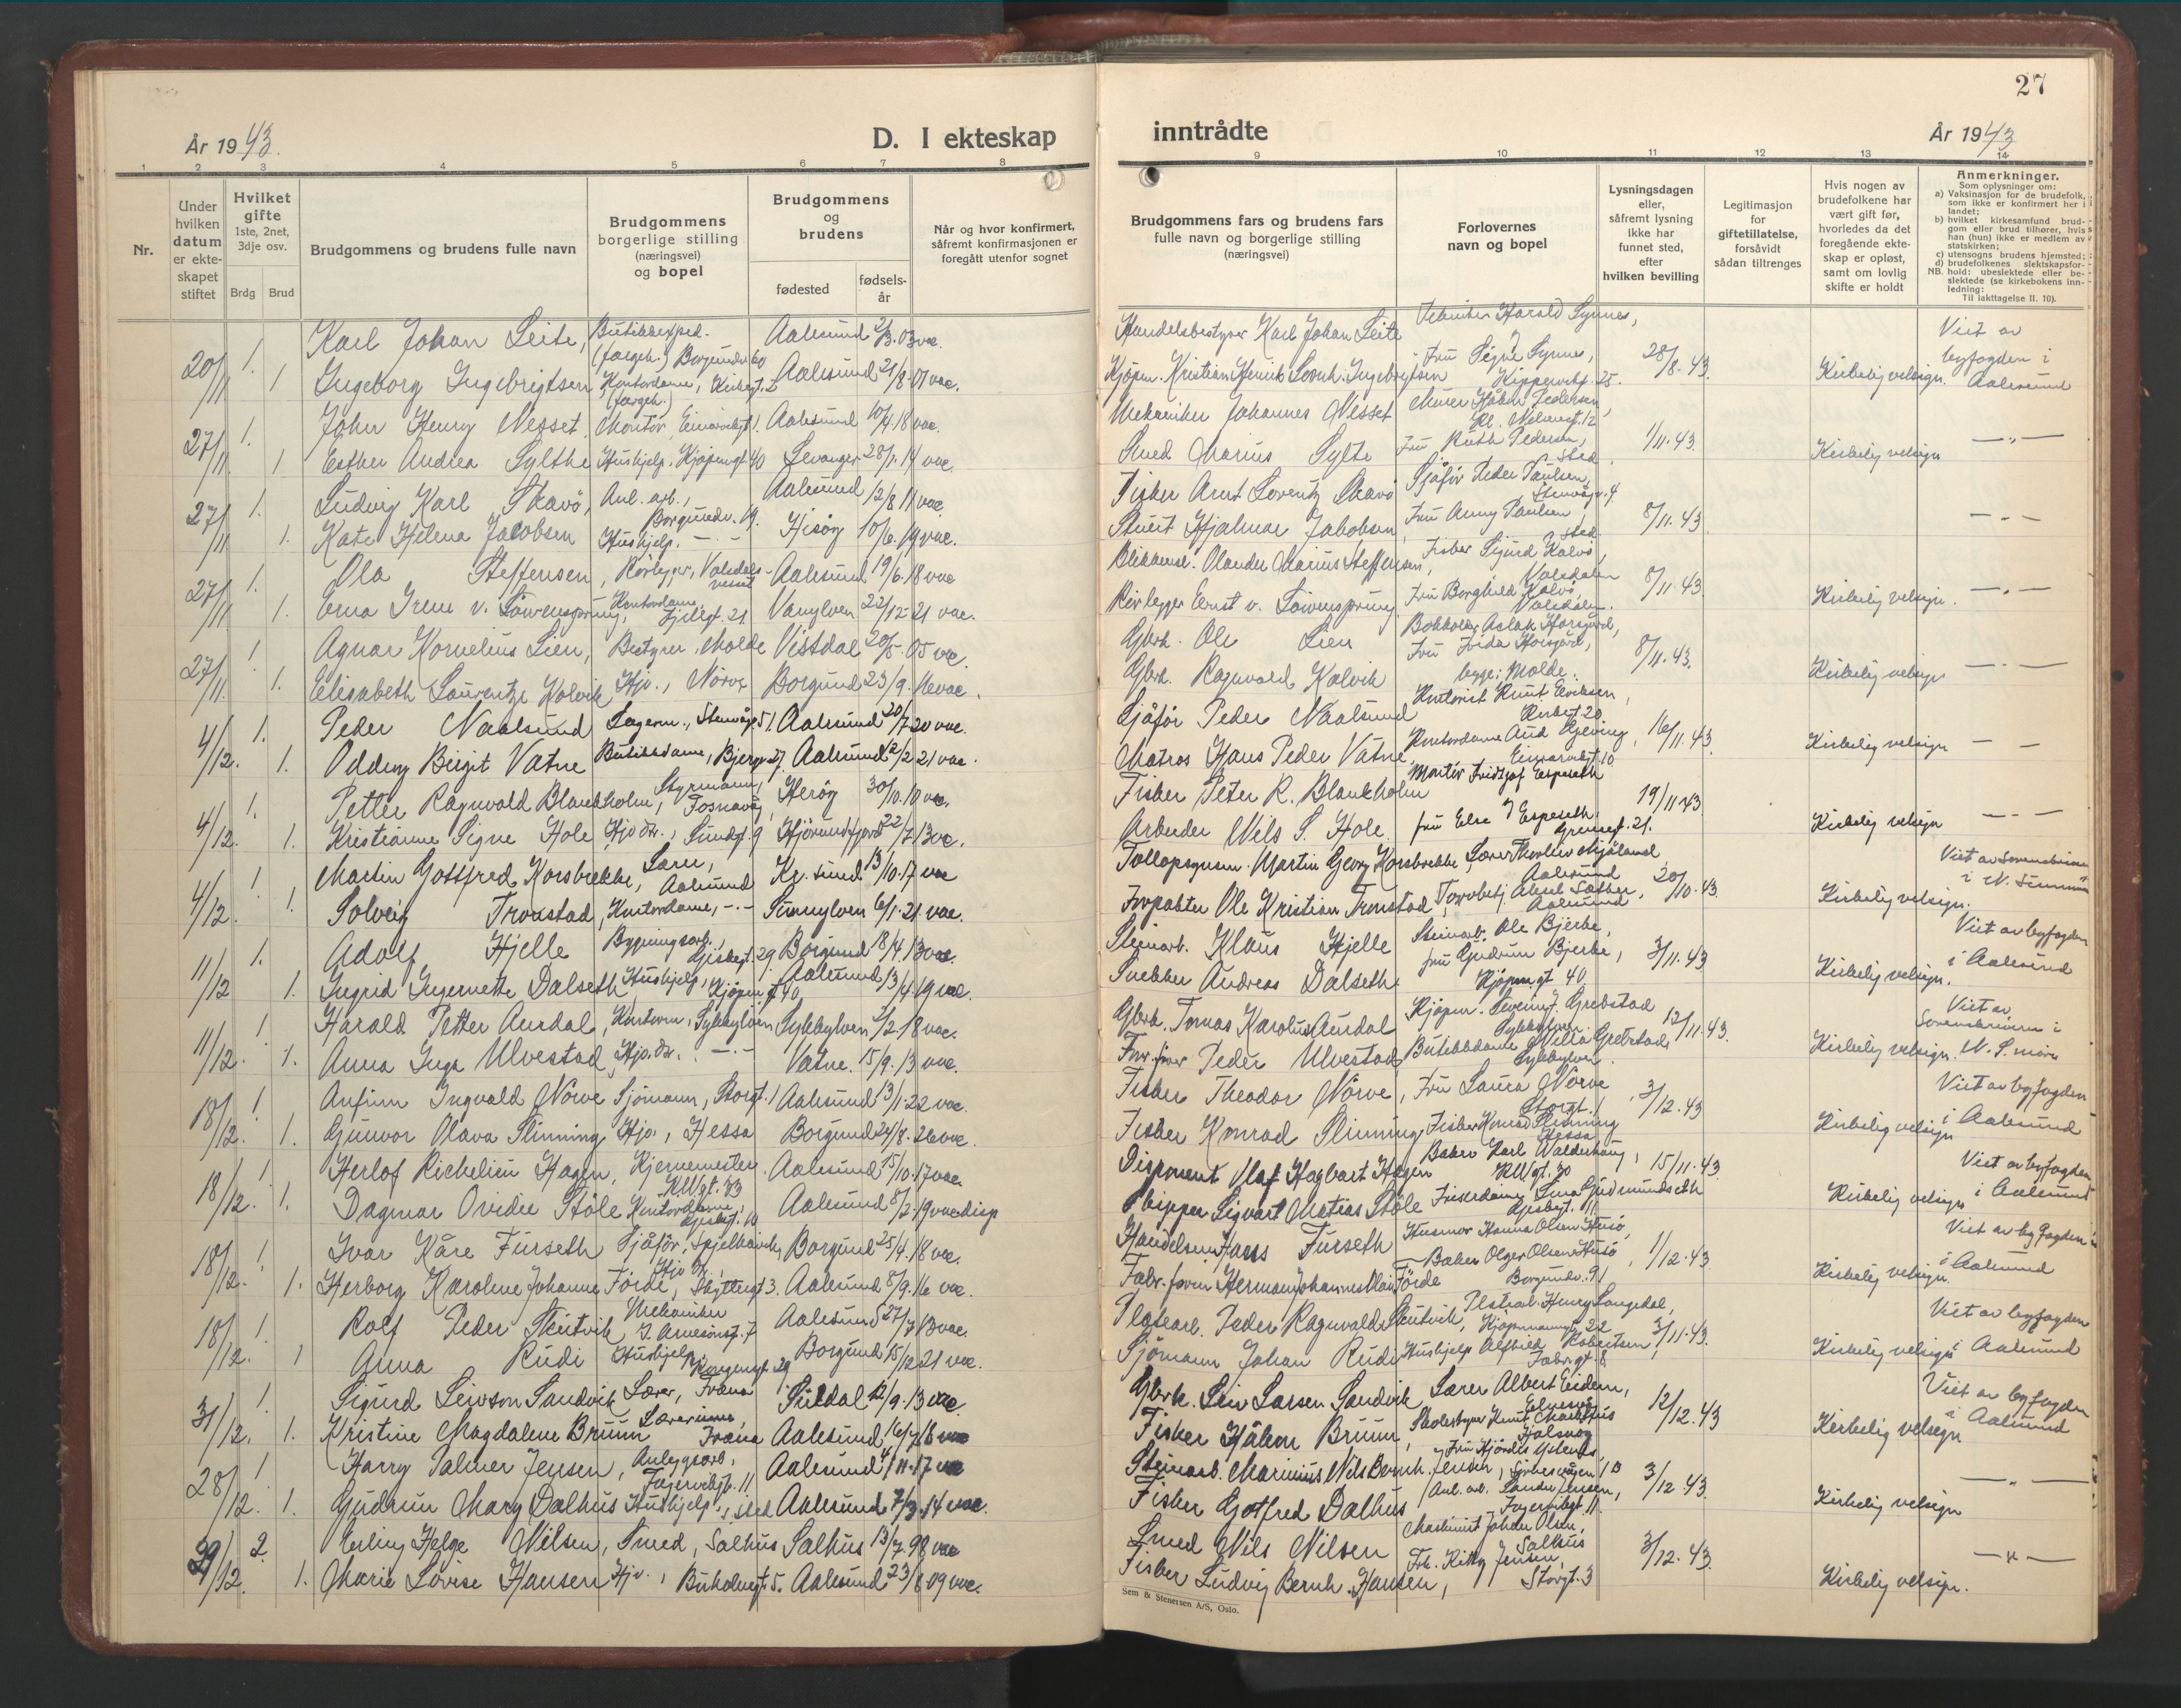 27
År 1943.
D. I ekteskap
inntrådte
År 1943
1 2 3 4 5 6 7 8
9 10 11 12 13 14
Nr.
Under hvilken datum er ekteskapet stiftet
Hvilket gifte 1ste, 2net, 3dje osv.
Brdg Brud
Brudgommens og brudens fulle navn
Brudgommens borgerlige stilling (næringsvei) og bopel
Brudgommens og brudens
fødested
fødsels-år
Når og hvor konfirmert, såfremt konfirmasjonen er foregått utenfor sognet
Brudgommens fars og brudens fars fulle navn og borgerlige stilling (næringsvei)
Forlovernes navn og bopel
Lysningsdagen eller, såfremt lysning ikke har funnet sted, efter hvilken bevilling
Legitimasjon for giftetillatelse, forsåvidt sådan tiltrenges
Hvis nogen av brudefolkene har vært gift før, hvorledes da det foregående ekteskap er opløst, samt om lovlig skifte er holdt
Anmerkninger.
Som oplysninger om:
a) Vaksinasjon for de brudefolk, som ikke er konfirmert her i landet;
b) hvilket kirkesamfund brudgom eller brud tilhører, hvis han (hun) ikke er medlem av statskirken;
c) utensogns brudens hjemsted;
d) brudefolkenes slektskapsforhold: ubeslektede eller beslektede (se kirkebokens innledning: Til iakttagelse II. 10).
NB.
20/11 1. Karl Johan Leite, Butikkexped. (fargeh.) Borgundv. 60 Aalesund 2/3. 03 vac. Handelsbestyrer Karl Johan Leite Harald Synnes,
1 Ingeborg Ingebrigtsen Kontordame, Kirkegt. 2 (fargeh.) Aalesund 21/8. 07 vac. Kjøpm. Kristian Henrik Bernh. Ingebrigtsen Fru Signe Synnes, 28/8. 43. Kirkelig velsign. Viet av byfogden i Aalesund
27/11 1. John Henry Nesset, Montør, Aalesund 10/4. 18 vac. Mekaniker Johannes Nesset Murer Håkon Pedersen,
1 Esther Andrea Sylthe Hushjelp, Kjøpmgt 40 Levanger 28/1. 14 vac. Smed Marius Sylte Fru Ruth Pedersen, sted. 1/11. 43. Kirkelig velsign — " —
27/11 1. Ludvig Karl Skavö, Anl. arb., Borgundv. 19. Aalesund 12/8 11 vac. Fisker Arnt Lorentz Skavö Sjåför Peder Paulsen, Stenvågv. 4
1. Kate Helena Jacobsen Hushjelp. — " — Hisöy 10/6. 19 vac. Stuert Hjalmar Jakobsen, Fru Anny Paulsen sted. 8/11. 43. — " —
27/11 1. Ola Steffensen, Rörlegger, Volsdalsvessel Aalesund 19/6. 18 vac Blikkensl. Olander Marius Steffensen, Fisker Sigurd Kalvö, Volsdalen
1. Erna Irene v. Löwensprung, Kontordame, Fjellgt. 21. Vanylven 22/12 21 vac. Rörlegger Ernst v. Löwensprung Fru Borghild Kalvö, Volsdalen. 8/11. 43. Kirkelig velsign. — " —
27/11. 1. Agnar Kornelius Lien, Bestyrer, Molde Vistdal 20/5. 05 vac. Gbrk. Ole Lien Bokholder Aslak Horsgård,
1. Elisabeth Laurentze Kalvik Hjv., Nörve Borgund 23/9. 16 vac. Gbrk. Ragnvald Kalvik Fru Frida Horsgård, begge: Molde. 8/11. 43. Kirkelig velsign — " —
4/12. 1. Peder Naalsund Lagerm., Stenvågv. 51. Aalesund 20/7 20 vac. Sjåför Peder Naalsund Kontorist Knut Eriksen, Kirkegt. 20
1. Oddny Birgit Vatne Butikkdame, Bjergv. 27. Aalesund 12/2 21 vac. Matros Hans Peder Vatne, Kontordame Aud Gjöving, 16/11. 43. Kirkelig velsign — —
4/12. 1. Petter Ragnvald Blankholm, Styrmann, Fosnavåg, Heröy 30/10. 10 vac. Fisker Peter R. Blankholm Montör Fridtjof Espeseth
1. Kristianne Signe Hole Hjv. , Sundgt. 9 Hjörundfjord 22/7. 13 vac. Arbeider Nils S. Hole. fru Else Espeseth, Grensegt. 21. 19/11 43 Kirkelig velsign — " —
4/12. 1. Martin Gottfred Korsbrekke, Lærer, Aalesund Kr. sund 13/10. 17 vac Tollopsynsm. Martin Georg Korsbrekke, Lærer Thorleiv Mjåland, Aalesund
1. Solveig Tronstad, Kontordame, — " — Sunnylven 6/1. 21. vac. Forpakter Ole Kristian Tronstad, Aksel Sæther, Aalesund 20/10. 43. Kirkelig velsign. Viet av Sorenskriver i N. Sunnmøre
11/12 1. Adolf Hjelle Bygningsarb. 29 Borgund 18/4. 13 vac. Steinarb. Klaus Hjelle Steinarb. Ole Bjerke,
1. Ingrid Ingernette Dalseth, Hushjelp, Kjøpm. gt 40 Aalesund 13/4. 19 vac. Snekker Andreas Dalseth fru Gudrun Bjerke, Kjøpm. gt 40 3/11. 43 Kirkelig velsign. Viet av byfogden i Aalesund
11/12. 1. Harald Petter Aurdal, Kontorm., Sykkylven Sykkylven 2/2. 18 vac. Gbrk. Tomas Karolus Aurdal Kjøpm. Grebstad Sykkylven
1. Anna Inga Ulvestad, Hjv. — " — Vatne. 15/9. 13 vac. Peder Ulvestad Butikkdame Milla Grebstad, Sykkylven. 12/11. 43. Kirkelig velsign. Viet av Sorenskriveren i N. S. möre
18/12. 1. Anfinn Ingvald Nörve Sjömann, Storgt. 1 Aalesund 13/1. 22 vac. Fisker Theodor Nörve, Fru Laura Nörve Storgt. 1
1. Gunvor Olava Slinning Hjv., Hessa Borgund 24/8. 26 vac. Fisker Konrad Slinning, Fisker Konrad Slinning Hessa 3/12. 43 Kirkelig velsign Viet av byfogden i Aalesund
18/12. 1. Herlof Richelieu Hagen, Kjernemester. KWgt. 33 Aalesund 15/10. 17 vac. Disponent Olaf Hagbart Hagen Baker Karl Walderhaug, KWgt. 30
1. Dagmar Ovidie Stöle Kontordame, Aalesund 8/2. 19 vac disp Skipper Sigvart Matias Stöle Gudmundseth 15/11. 43. Kirkelig velsign Viet av byfogden i Aalesund
18/12. 1. Ivar Kåre Furseth Sjåför, Spjelkavik, Borgund 25/4. 18 vac. Handelsm. Hans Furseth Husmor Hanna Olsen Husö,
1. Herborg Karoline Johanne Förde, Hjv. , Skyttergt 3. Aalesund 8/9. 16 vac. Fabr. form. Herman Johannes Förde Baker Olger Olsen Husö, Borgundv. 91 1/12. 43. Kirkelig velsign. Viet av byfogden i Aalesund
18/12. 1. Rolf Peder Skutvik Mekaniker Aalesund 27/7. 13 vac. Platearb. Peder Ragnvald Skutvik, Platearb. Henry Langedal, 22
1 Anna Rudi Hushjelp Borgund 15/12 21 vac. Sjömann Johan Rudi Hushjelp Alfhild Robertsen, 3/11. 43. Kirkelig velsign Viet av byfogden i Aalesund
31/12. 1. Sigurd Leivson Sandvik Lærer, Fræna Suldal 12/9. 13 vac. Gbrk. Leiv Larsen Sandvik Lærer Albert Eidem,
1. Kristine Magdalene Bruun Lærerinne, Fræna Aalesund 16/7. 18 vac Fisker Håkon Bruun, 12/12. 43 Kirkelig velsign Viet av byfogden i Aalesund
28/12. 1 Harry Palmer Jensen, Anleggsarb., Fagervikgt. 11 Aalesund 4/11. 17 vac Steinarb. Marinius Nils Bernh. Jensen,
1. Gudrun Marg Dalhus Hushjelp, sted Aalesund 7/3. 14 vac. Fisker Gotfred Dalhus Fagervikgt. 11. 3/12. 43. Kirkelig velsign — " —
29/12. 2. Erling Helge Nilsen, Smed, Salhus Salhus 13/7. 98 vac Smed Nils Nilsen Maskinist Johan Olsen, Salhus
1. Marie Lovise Hansen Hjv., Buholmgt. 5. Aalesund 23/8 09 vac. Fisker Ludvig Bernh. Hansen, Frk. Kitty Jensen, Storgt. 3 3/12. 43. Kirkelig velsign. — " —
Sem & Stenersen A/S, Oslo.